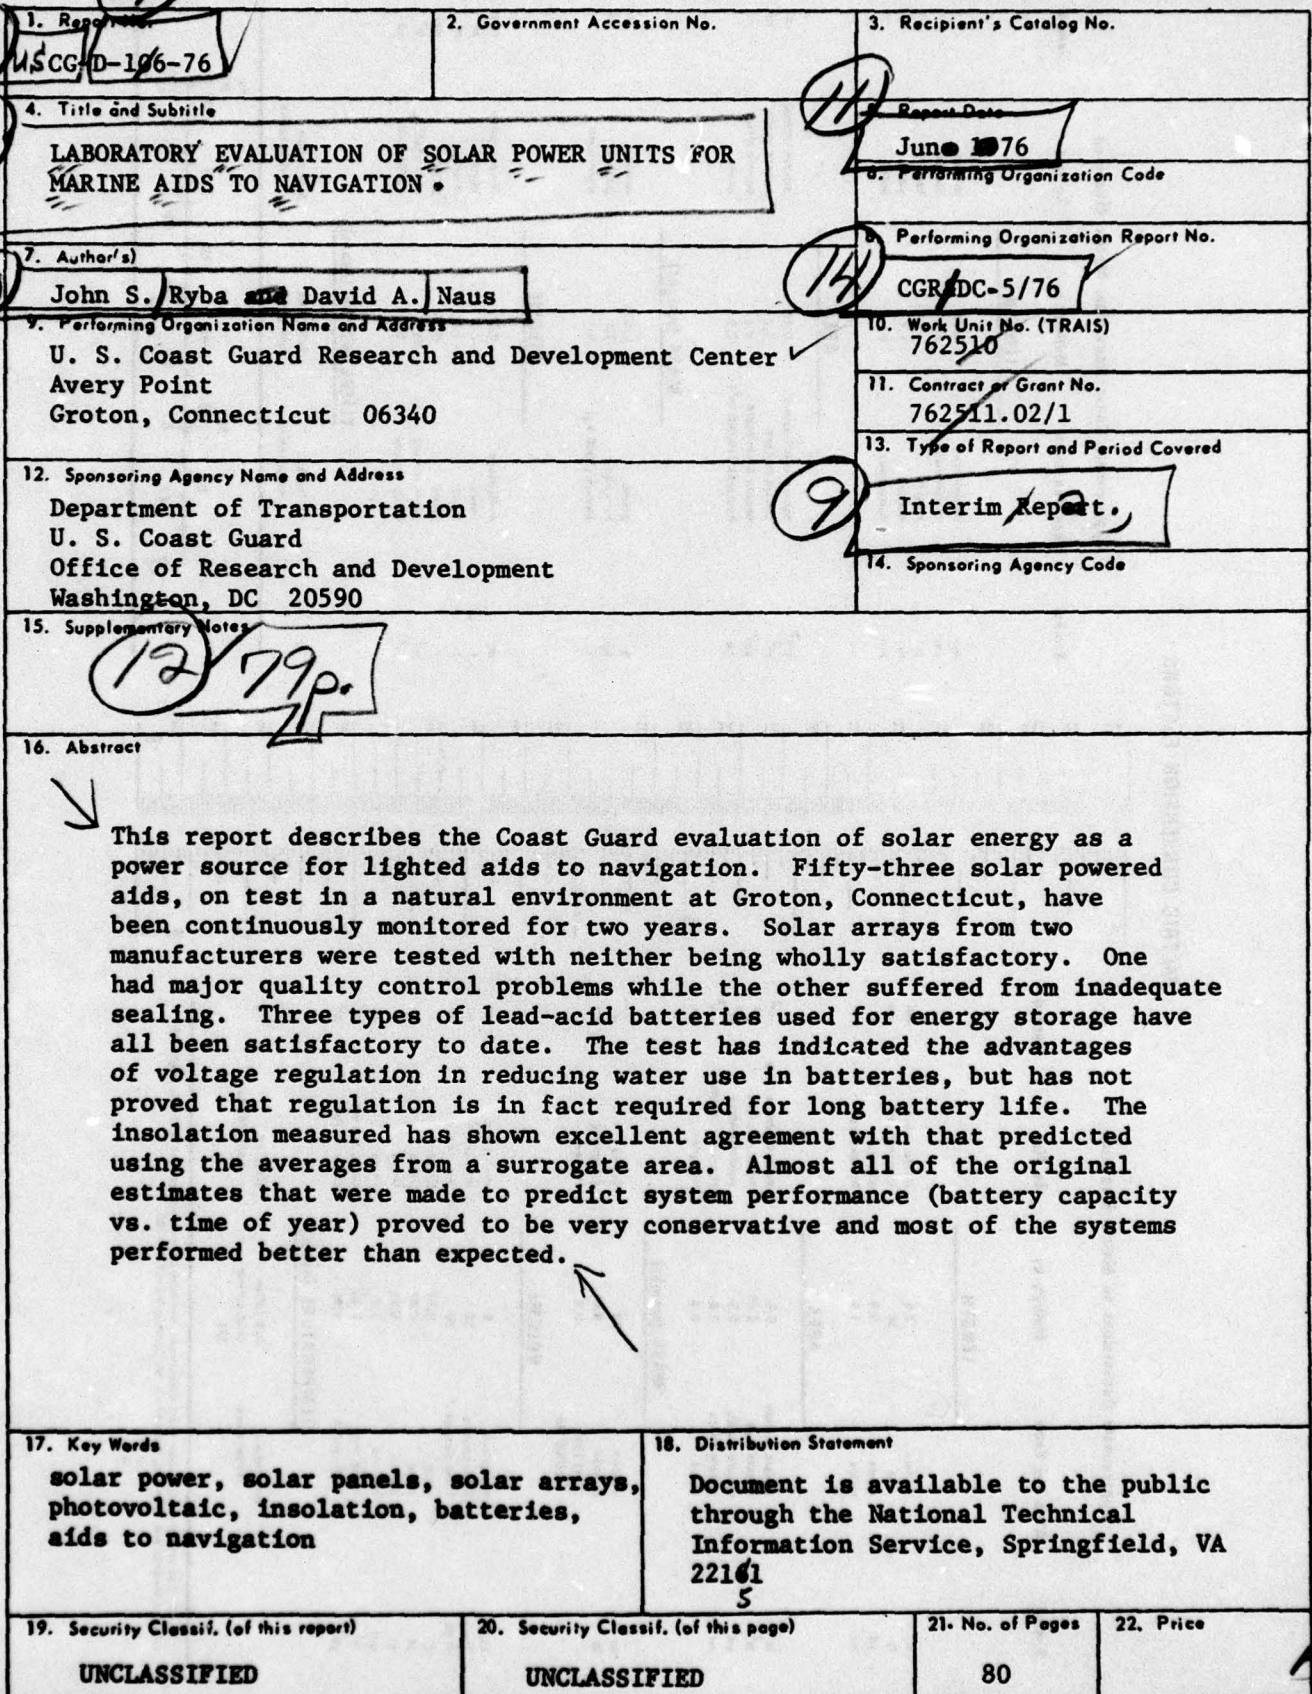 1. Report No.
USCG-D-106-76
2. Government Accession No.
3. Recipient's Catalog No.
4. Title and Subtitle
LABORATORY EVALUATION OF SOLAR POWER UNITS FOR
MARINE AIDS TO NAVIGATION.
11
5. Report Date
June 1976
6. Performing Organization Code
7. Author(s)
John S. Ryba and David A. Naus
14
8. Performing Organization Report No.
CGR&DC-5/76
9. Performing Organization Name and Address
U. S. Coast Guard Research and Development Center
Avery Point
Groton, Connecticut 06340
10. Work Unit No. (TRAIS)
762510
11. Contract or Grant No.
762511.02/1
12. Sponsoring Agency Name and Address
Department of Transportation
U. S. Coast Guard
Office of Research and Development
Washington, DC 20590
13. Type of Report and Period Covered
9
Interim Report.,
14. Sponsoring Agency Code
15. Supplementary Notes
12 79p.
16. Abstract
This report describes the Coast Guard evaluation of solar energy as a
power source for lighted aids to navigation. Fifty-three solar powered
aids, on test in a natural environment at Groton, Connecticut, have
been continuously monitored for two years. Solar arrays from two
manufacturers were tested with neither being wholly satisfactory. One
had major quality control problems while the other suffered from inadequate
sealing. Three types of lead-acid batteries used for energy storage have
all been satisfactory to date. The test has indicated the advantages
of voltage regulation in reducing water use in batteries, but has not
proved that regulation is in fact required for long battery life. The
insolation measured has shown excellent agreement with that predicted
using the averages from a surrogate area. Almost all of the original
estimates that were made to predict system performance (battery capacity
vs. time of year) proved to be very conservative and most of the systems
performed better than expected.
17. Key Words
solar power, solar panels, solar arrays,
photovoltaic, insolation, batteries,
aids to navigation
18. Distribution Statement
Document is available to the public
through the National Technical
Information Service, Springfield, VA
22161
5
19. Security Classif. (of this report)
UNCLASSIFIED
20. Security Classif. (of this page)
UNCLASSIFIED
21. No. of Pages
80
22. Price